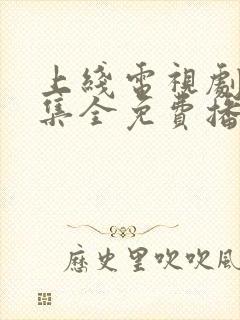 上綫電視劇
集全免費播
歷史里吹吹風